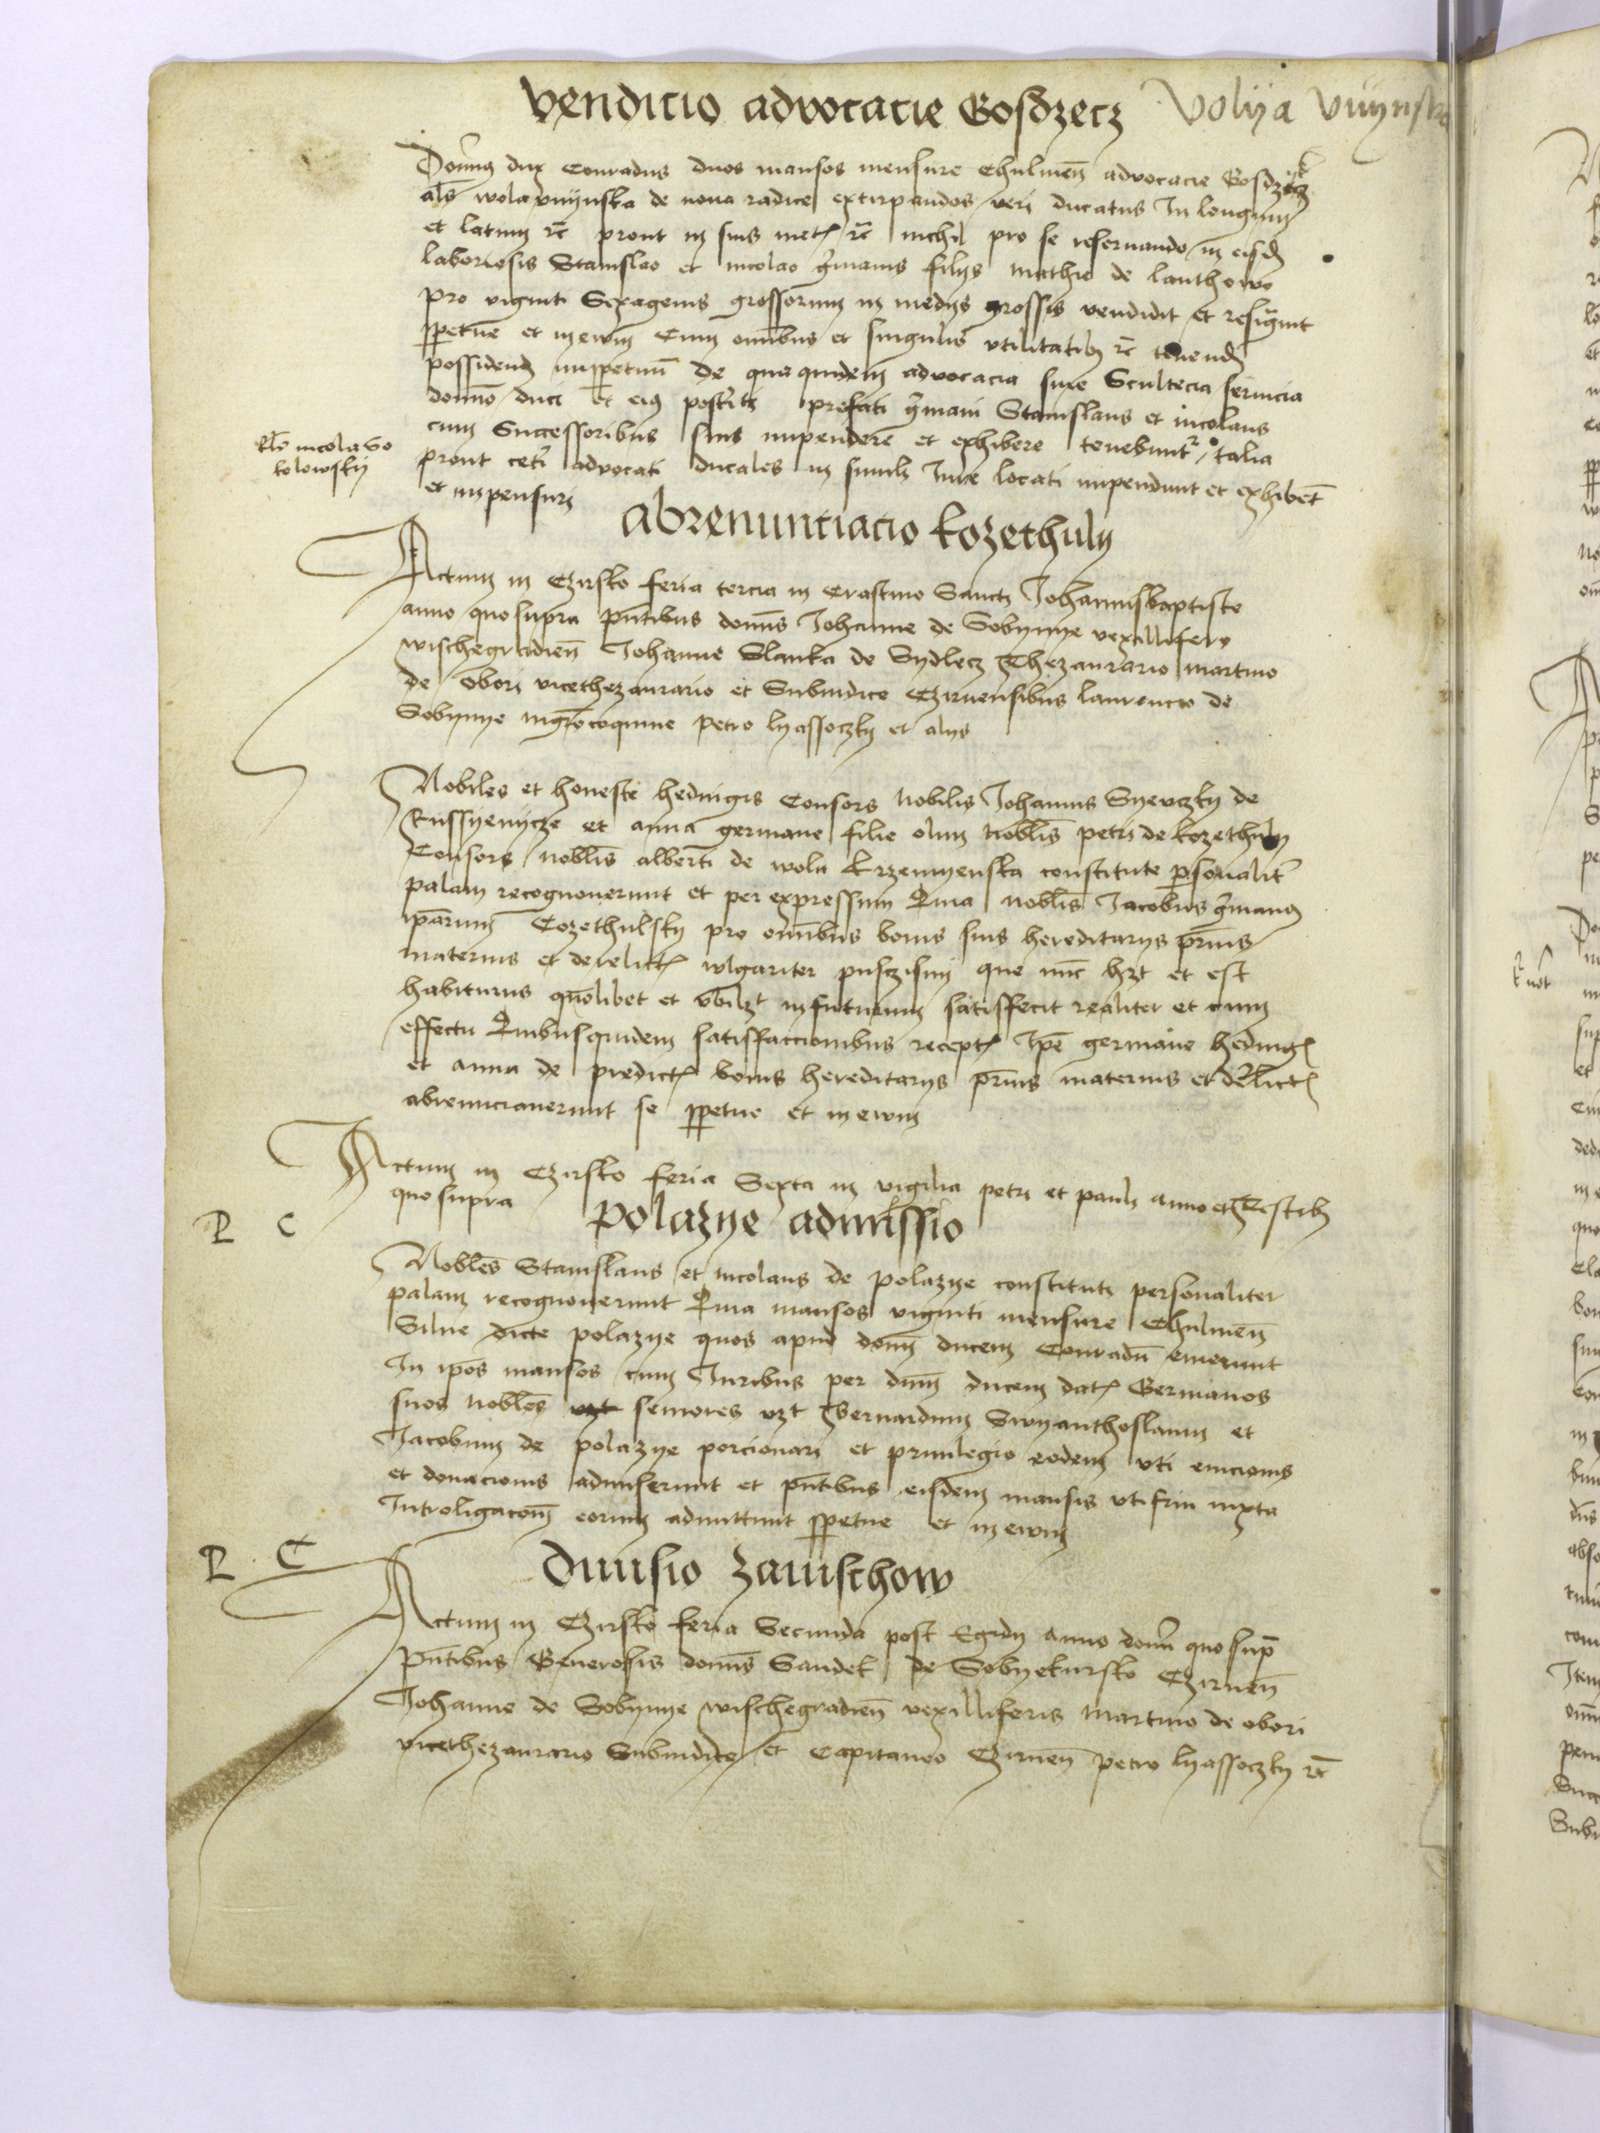 Venditio advocacie Gosdzecz Volija Vuijnska
Domīs dux Conradus duos mansos mensure Chulmen̄ advocacie Gosdzecz
als wola vnijnska de nova radice extirpandos veri ducatus In longum
et latum rc̄ prout in suis met rc̄ nichil pro se reservando in eisd
laboriosis Stanislao et nicolao gīmanis filijs mathie de lanthowo
pro viginti Sexagenis grossorum in medijs grossis vendidit et resignāt
ppetue et in ewm Cum omībus et singulis vtilitatib rc̄ tenend
possidend imppetuū De qua quidem advocacia sive Scultecia servicia
domīo duci et eiꝰ posterib prefati gīmani Stanislaus et nicolaus
cum Successoribus suis impendere et exhibere tenebunt talia
prout ceti advocati ducales in simili Iure locati impendunt et exhibēt
et impensuri
Rłs nicola Go
tolowskij
Abrenunctiacio kozethulij
Actum in Czirsko feria tercia in Crastino Sancti Johannisbaptiste
anno quo supra pn̄tibus domīs Johanne de Sobynye vexillifero
wischegradien̄ Johanne Slanka de Sydlecz Thezaurario martino
de obori vicethezaurario et Subiudice Czirnensibus laurencio de
Sobynye mgrōcoquine petro lyassoczky et alijs
Nobiles et honeste hedwigis Consors nobilis Johannis Syewczky de
Russyenycze et anna germane filie olim nobłis petri de kozethuly
Consors nobłis alberti de wola krzemyenska constitute psonalit
palam recognouerunt et per expressum Quia nobłis Jacobus gīmanꝰ
ip̄arum Cozethulsky pro omībus bonis suis hereditarijs pn̄is
maternis et derelict wlgariter pusczisni que nūc hz̄t et est
habiturus quolibet et vbilz̄t infuturum satisffecit realiter et cum
effectu Quibusquidem satisffaccionibus recept Ip̄e germane hedwig
et anna de predict bonis hereditarijs pn̄is maternis et delict
abrenunciauerunt se ppetue et in ewm
Actum in Czirsko feria Sexta in vigilia petri et pauli anno et Testib
quo supra
P C
Polazye admissio
Nobłes Stanislaus et nicolaus de polazye constituti personaliter
palam recognouerunt Quia mansos viginti mensure Chulmen̄
Silue dicte polazye quos apud domī ducem Conradū emerunt
In ip̄os mansos cum Iuribus per dnm̄ ducem dat Germanos
suos nobłes vz̄t seniores vz̄t Bernardum Swyanthoslaum et
Jacobum de polazye porcionari et priuilegio eodem vti empcionis
et donacionis admiserunt et pn̄tibus eisdem mansis vtifrui iuxta
Introligacōm eorum admittunt ppetue et in ewm
P C
Diuisio Zamschow
Actum in Czirsko feria Secunda post Egidij anno domī quo sup̄
pn̄tibus Generosis domīs Sandek de Sobyekursko Czirnen̄
Johanne de Sobynye wischegradien̄ vexilliferis martino de obori
vicethezaurario Subiudice et Capitaneo Czirnen̄ petro lyassoczky rc̄